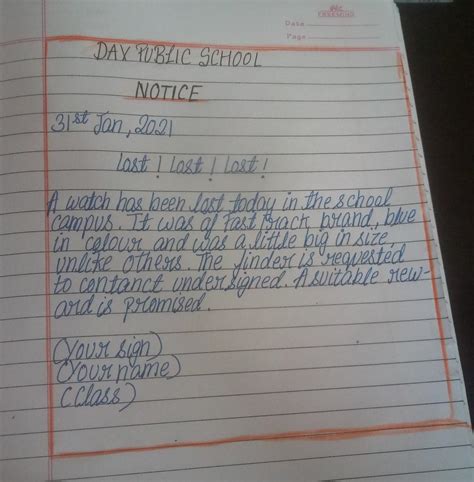 FREEMIND
Date
Page
DAV PUBLIC SCHOOL
NOTICE
31st Jan, 2021
Lost ! Lost ! Lost !
A watch has been lost today in the school
campus. It was of fast track brand, blue
in colour and was a little big in size,
unlike others. The finder is requested
to contanct undersigned. A suitable rew-
ard is promised.
(Your sign)
(Your name)
(Class)